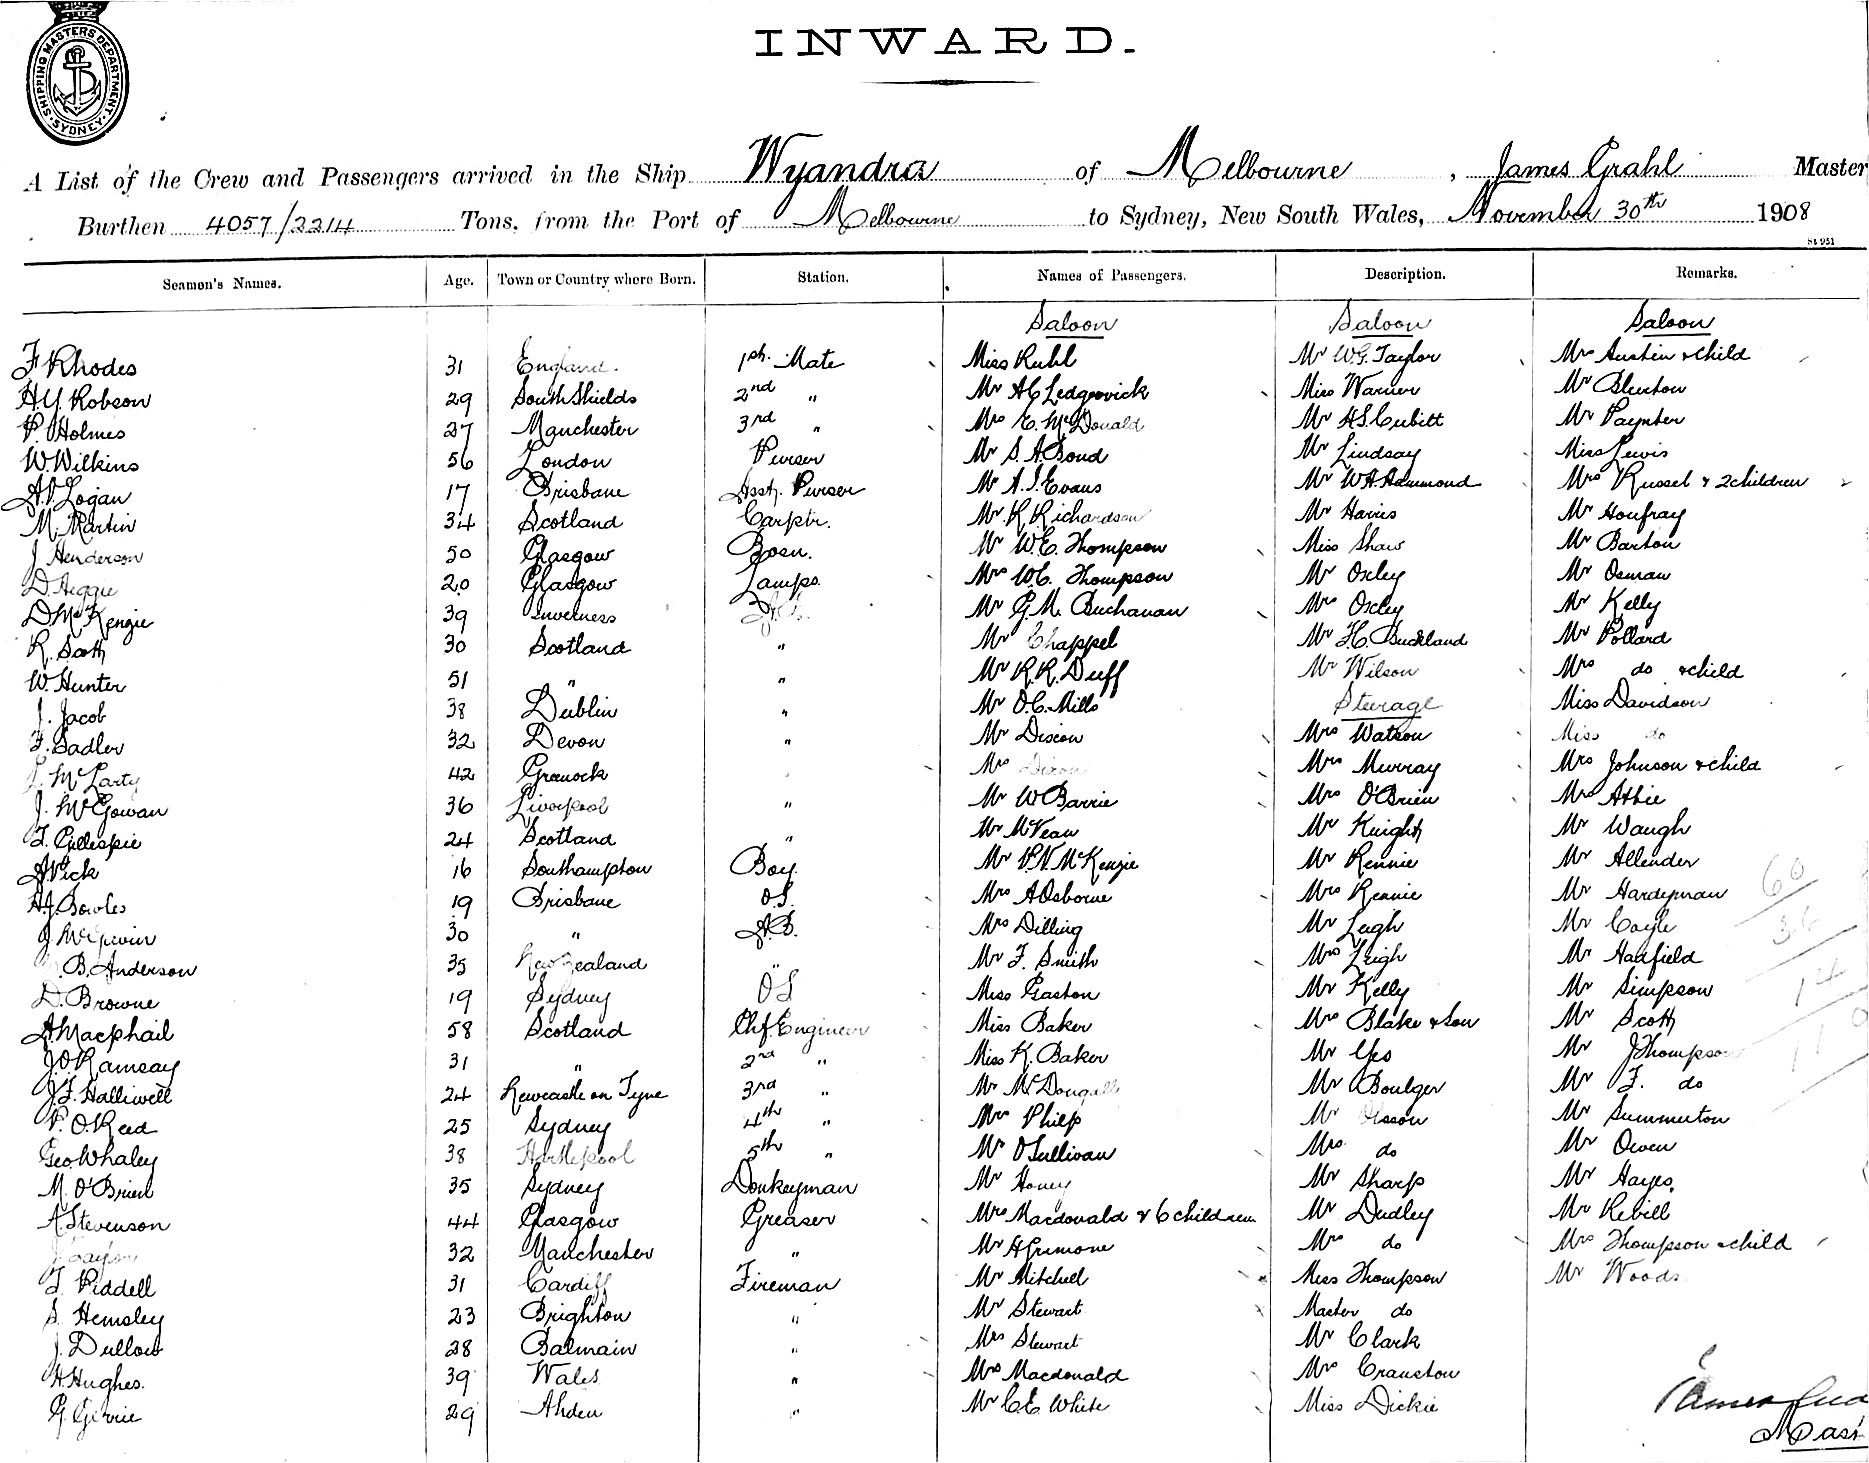 SHIPPING MASTERS DEPARTMENT. SYDNEY
INWARD.
A List of the Crew and Passengers arrived in the Ship Wyandra of Melbourne, James Grahl Master
Burthen 4057/2214 Tons, from the Port of Melbourne to Sydney, New South Wales, November 30th 1908
St 951
Seamen's Names. Age. Town or Country where Born. Station. Names of Passengers. Description. Remarks.
Saloon Saloon Saloon
F Rhodes 31 England. 1st. Mate Miss Ruhl Mr W.G. Taylor Mrs Austin & child
H.Y. Robson 29 South Shields 2nd " Mr Miss Warner Mr
P. Holmes 27 Manchester 3rd " Mrs E. McDonald Mr H.S. Cubitt Mr Paynter
W. Wilkins 56 London Purser Mr S. A. Bond Mr Lindsay Miss Lewis
A.P. Logan 17 Brisbane Asst. Purser Mr A. J. Evans Mr W.A. Hammond Mrs Russel & 2 children
M. Martin 34 Scotland Carptr. Mr R Richardson Mr Harris Mr Houfray
J. Henderson 50 Glasgow Bosn. Mr W.E. Thompson Miss Shaw Mr Barton
D. Heggie 20 Glasgow Lamps. Mrs W.E. Thompson Mr Oxley Mr Osman
D. McKenzie 39 Inverness Mr G. M. Buchanan Mrs Oxley Mr Kelly
R. Scott 30 Scotland " Mr Chappel Mr H. Buckland Mr Pollard
W. Hunter 51 " " Mr R. R. Duff Mr Wilson Mrs do & child
J. Jacob 38 Dublin " Mr O.C. Mills Steerage Miss Davidson
F. Sadler 32 Devon " Mr Dixon Mrs Watson Miss do
McLarty 42 Greenock Mrs Dixon Mrs Murray Mrs Johnson & child
J. McGowan 36 Liverpool " Mr W Barrie Mrs O'Brien Mrs Attie
T. Gillespie 24 Scotland " Mr McVean Mr Knight Mr Waugh
A Pick 16 Southampton Boy. Mr P.N. McKenzie Mr Rennie Mr Allender
A.J. Bowles 19 Brisbane O.S. Mrs A Osborne Mrs Rennie Mr Hardyman
J. 30 " A.B. Mrs Dilling Mr Leigh Mr Coyle
B. Anderson 35 New Zealand " Mr F. Smith Mrs Leigh Mr Hadfield
D. Browne 19 Sydney O S Miss Gaston Mr Kelly Mr Simpson
A Macphail 58 Scotland Chf. Engineer Miss Baker Mrs Blake & Son Mr Scott
J.O. Ramsay 31 " 2nd " Miss K. Baker Mr Mr J Thompson
J.F. Halliwell 24 Newcastle on Tyne 3rd " Mr McDougall Mr Boulger Mr F. do
P. O. Reed 25 Sydney 4th " Mrs Philp Mr Mr Summerton
Geo. Whaley 38 Hartlepool 5th " Mr O'Sullivan Mrs do Mr Owen
M. O'Brien 35 Sydney Donkeyman Mr Honey Mr Sharp Mr Hayes.
A. Stevenson 44 Glasgow Greaser Mrs Macdonald & 6 children Mr Dudley Mr Rebill
J. 32 Manchester " Mr H Grimone Mrs do Mrs Thompson & child
T. Piddell 31 Cardiff Fireman Mr Mitchell Miss Thompson Mr Woods
S. Hemsley 23 Brighton " Mr Stewart Master do
J. Dullow 28 Balmain " Mrs Stewart Mr Clark
H. Hughes. 39 Wales " Mrs Macdonald Mrs Cranston
G. Gerrie 29 Ahden " Mr C.E. White Miss Dickie
60
36
14
James
Mas